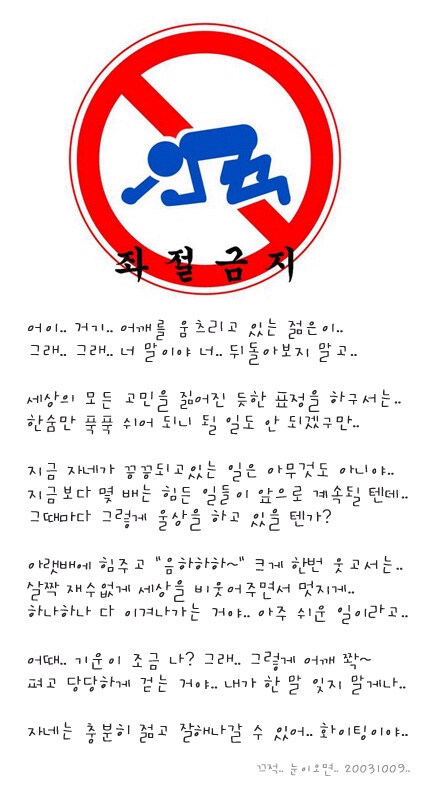 좌절금지
어이.. 거기.. 어깨를 움츠리고 있는 젊은이..
그래.. 그래.. 너 말이야 너.. 뒤돌아보지 말고..
세상의 모든 고민을 짊어진 듯한 표정을 하구서는..
한숨만 푹푹 쉬어 되니 될 일도 안 되겠구만..
지금 자네가 끙끙되고있는 일은 아무것도 아니야..
지금보다 몇 배는 힘든 일들이 앞으로 계속될 텐데..
그때마다 그렇게 울상을 하고 있을 텐가?
아랫배에 힘주고 "음하하하~" 크게 한번 웃고서는..
살짝 재수없게 세상을 비웃어주면서 멋지게..
하나하나 다 이겨나가는 거야.. 아주 쉬운 일이라고..
어때.. 기운이 조금 나? 그래.. 그렇게 어깨 쫙~
펴고 당당하게 걷는 거야.. 내가 한 말 잊지 말게나..
자네는 충분히 젊고 잘해나갈 수 있어.. 화이팅이야..
끄적.. 눈이오면.. 20031009..